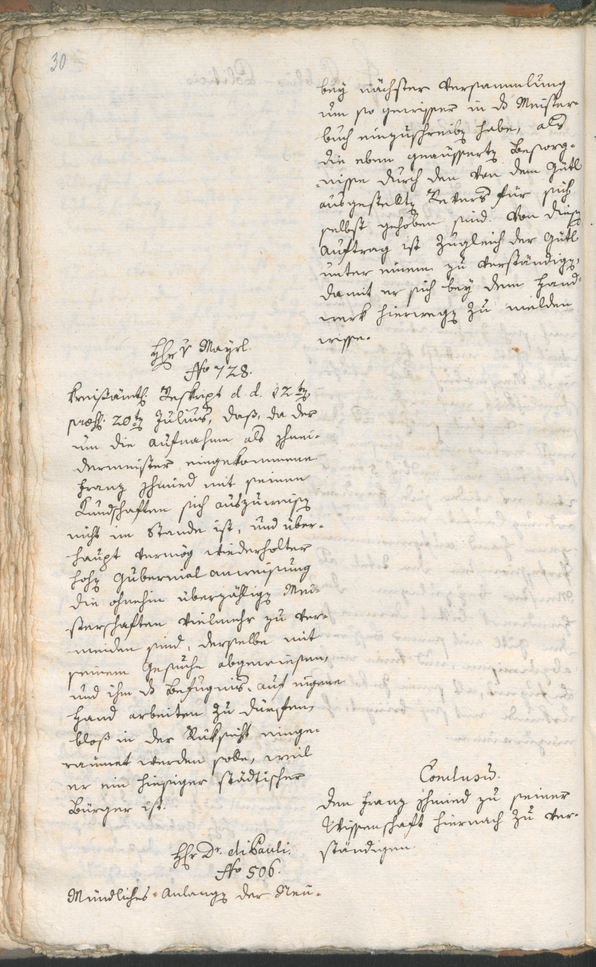 30
bey nächster Versammlung
um so gewisser in ds Meister
buch einzuschreibn habe, als
die eben geäussertn Besorg-
nisse durch den von dem Gütl
ausgestelltn Revers für sich
selbst gehoben sind. Von diesn
Auftrag ist zugleich der Gütl
unter einem zu verständign,
damit er sich bey dem Hand-
werk hierwegn zu melden
wisse.
Hr v Mayrl.
No 728.
Kreisämtl. Reskript d. d. 12tn
praes. 20tn Julius, daß, da der
um die Aufnahme als Schnei-
dermeister eingekommene
Franz Schmied mit seinen
Kundschaften sich auszuweisn
nicht im Stande ist, und über-
haupt vermög wiederholter
hohn Gubernial anweisung
die ohnehin überzählign Mei-
sterschaften vielmehr zu ver-
meiden sind, derselbe mit
seinem Gesuche abgewiesen,
und ihm ds Befugnis, auf eigene
Hand arbeiten zu dürfen,
bloß in der Rücksicht einge-
raumet werden solle, weil
er ein hiesiger städtischer
Bürger ist.
Conclusum.
Den Franz Schmied zu seiner
Wissenschaft hiernach zu ver-
ständigen
Hr Dr. di Pauli.
No 506.
Mündliches Anlangen der Neu-